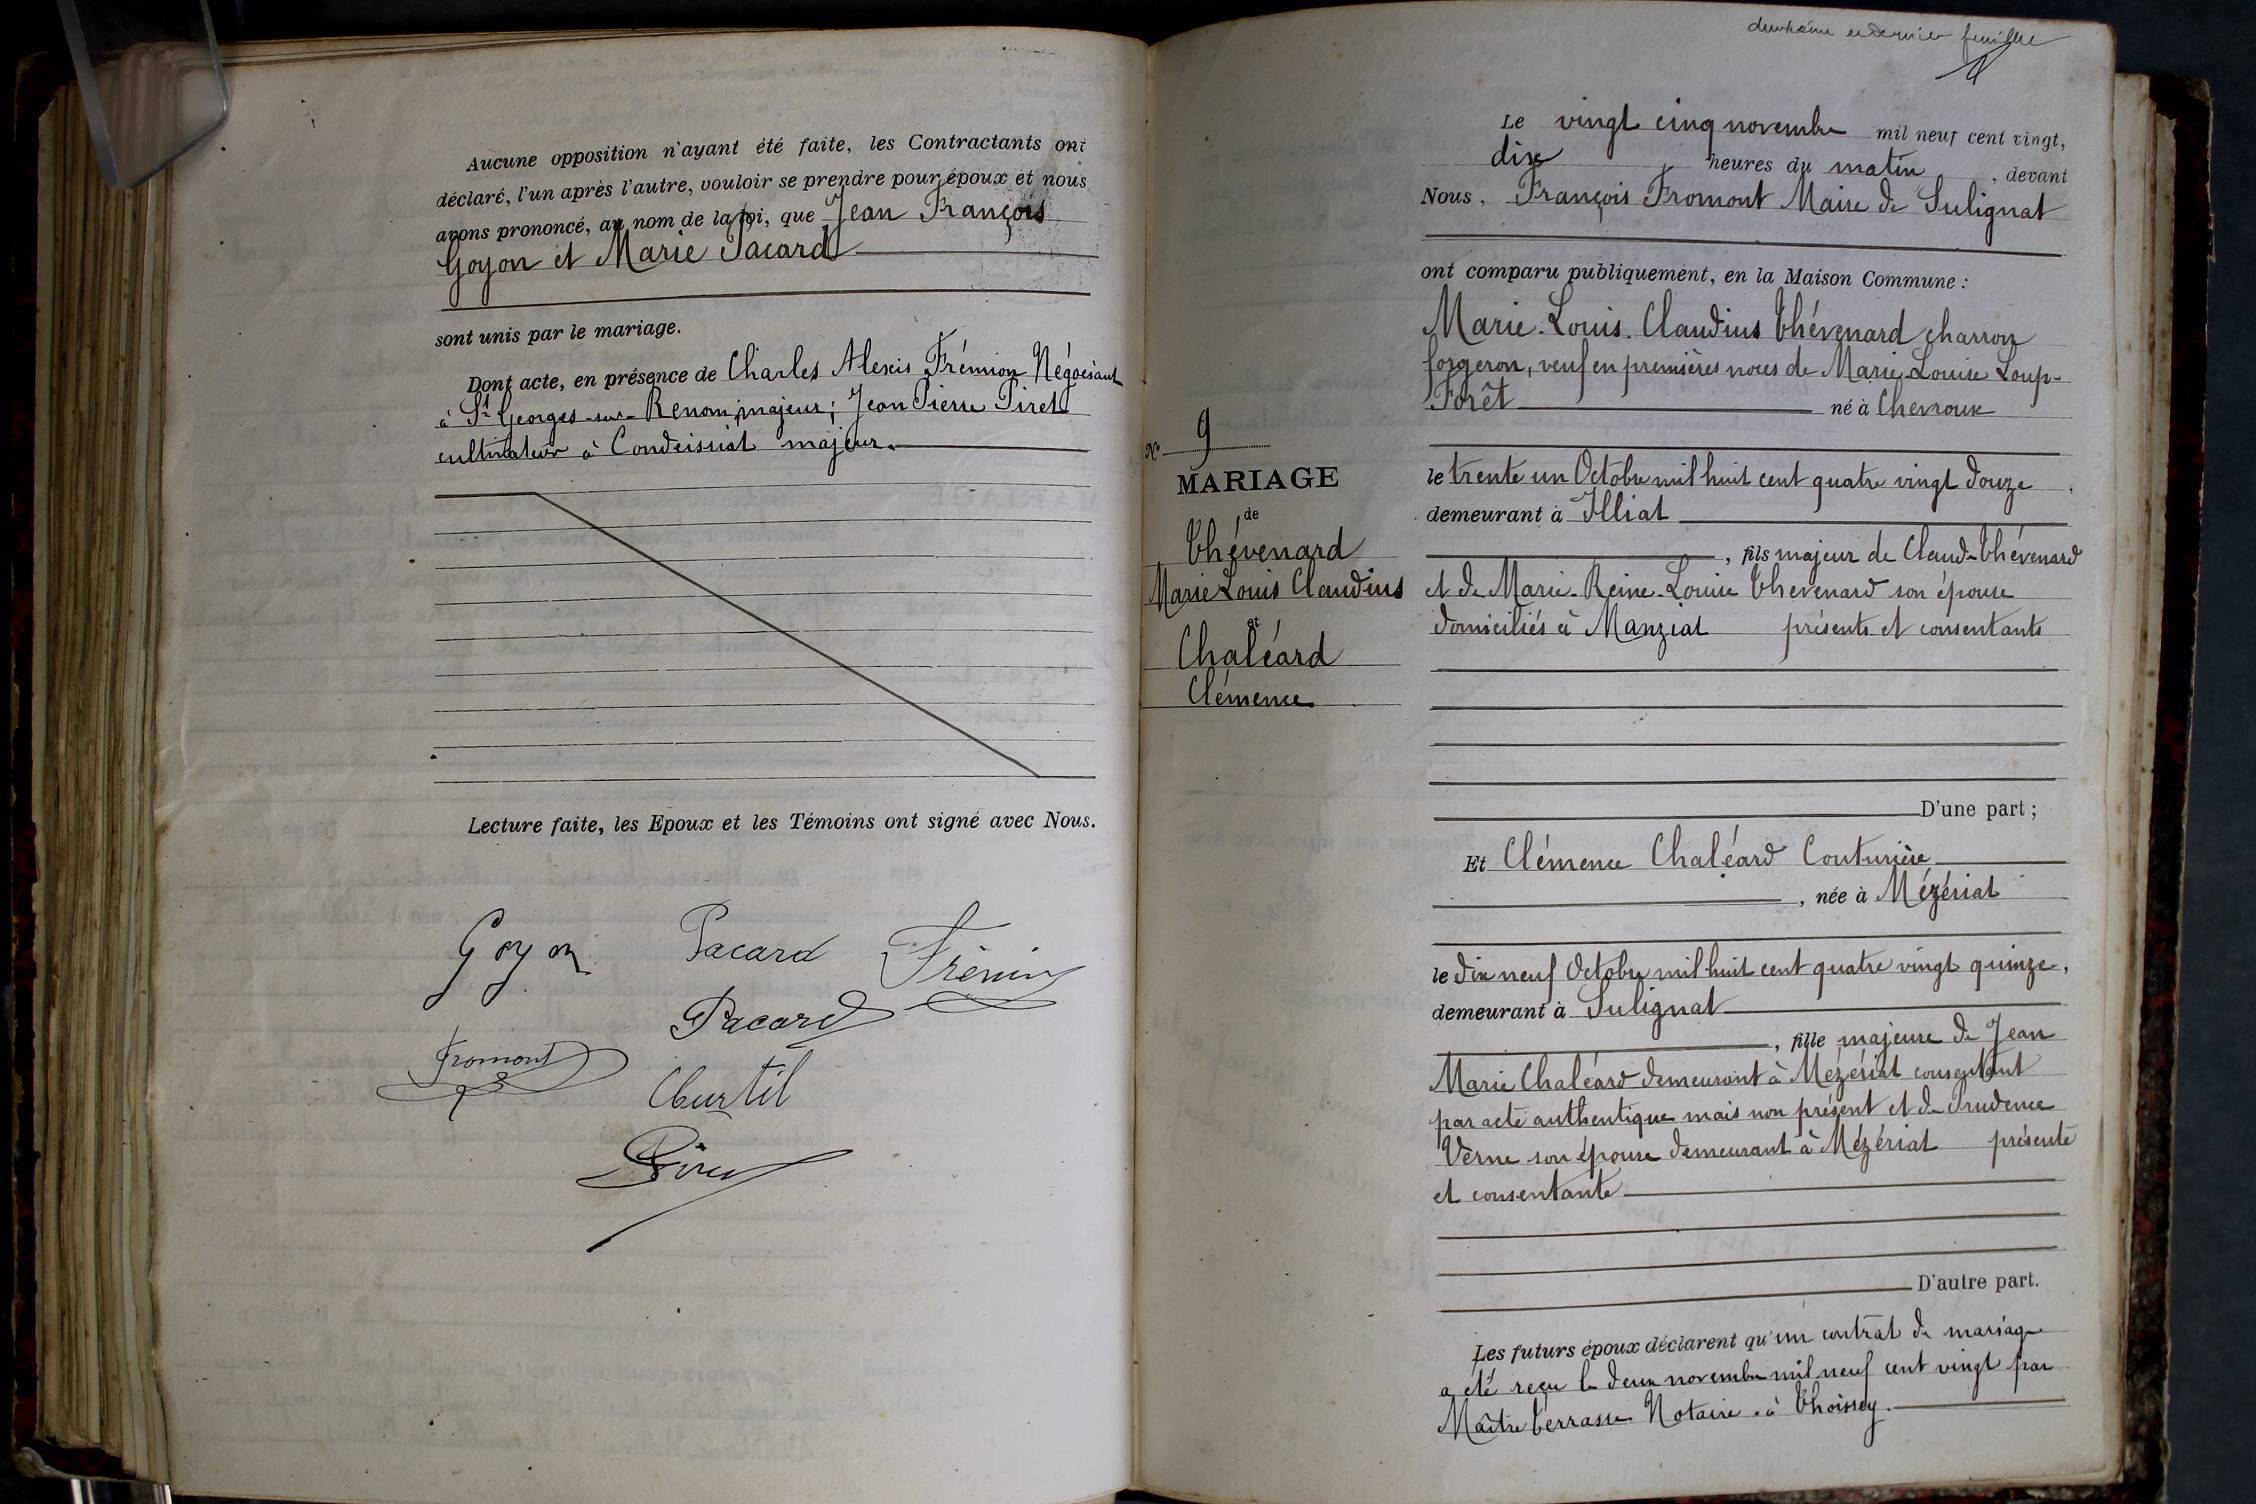 Aucune opposition n'ayant été faite, les Contractants ont
déclaré, l'un après l'autre, vouloir se prendre pour époux et nous
avons prononcé, au nom de la loi, que Jean François
Goyon et Marie Pacard
sont unis par le mariage.
Dont acte, en présence de Charles Alexis Frémion Négociant
à St Georges-sur-Renom, majeur; Jean Pierre Piret
cultivateur à Condeissiat majeur.
Lecture faite, les Epoux et les Témoins ont signé avec Nous.
Goyon Pacard
Pacard
Fromont
Curtil
deuxième et dernier feuillet
Le vingt cinq novembre mil neuf cent vingt,
dix heures du matin, devant
Nous, François Fromont Maire de Sulignat
ont comparu publiquement, en la Maison Commune :
Marie-Louis-Claudius Thévenard charron
forgeron, veuf en premières noces de Marie-Louise Loup-
Forêt né à Chevroux
le trente un Octobre mil huit cent quatre vingt douze,
demeurant à Illiat
, fils majeur de Claude Thévenard
et de Marie-Reine-Louise Thevenard son épouse
domiciliés à Manziat présents et consentants
D'une part ;
N° 9
MARIAGE
de
Thévenard
Marie Louis Claudius
et
Chaléard
Clémence
Et Clémence Chaléard Couturière
, née à Mézériat
le dix neuf Octobre mil huit cent quatre vingt quinze,
demeurant à Sulignat
, fille majeure de Jean
Marie Chaléard demeurant à Mézériat consentant
par acte authentique mais non présent et de Prudence
Verne son épouse demeurant à Mézériat présente
et consentante
D'autre part.
Les futurs époux déclarent qu'un contrat de mariage
a été reçu le deux novembre mil neuf cent vingt par
Maître Terrasse Notaire à Thoissey.